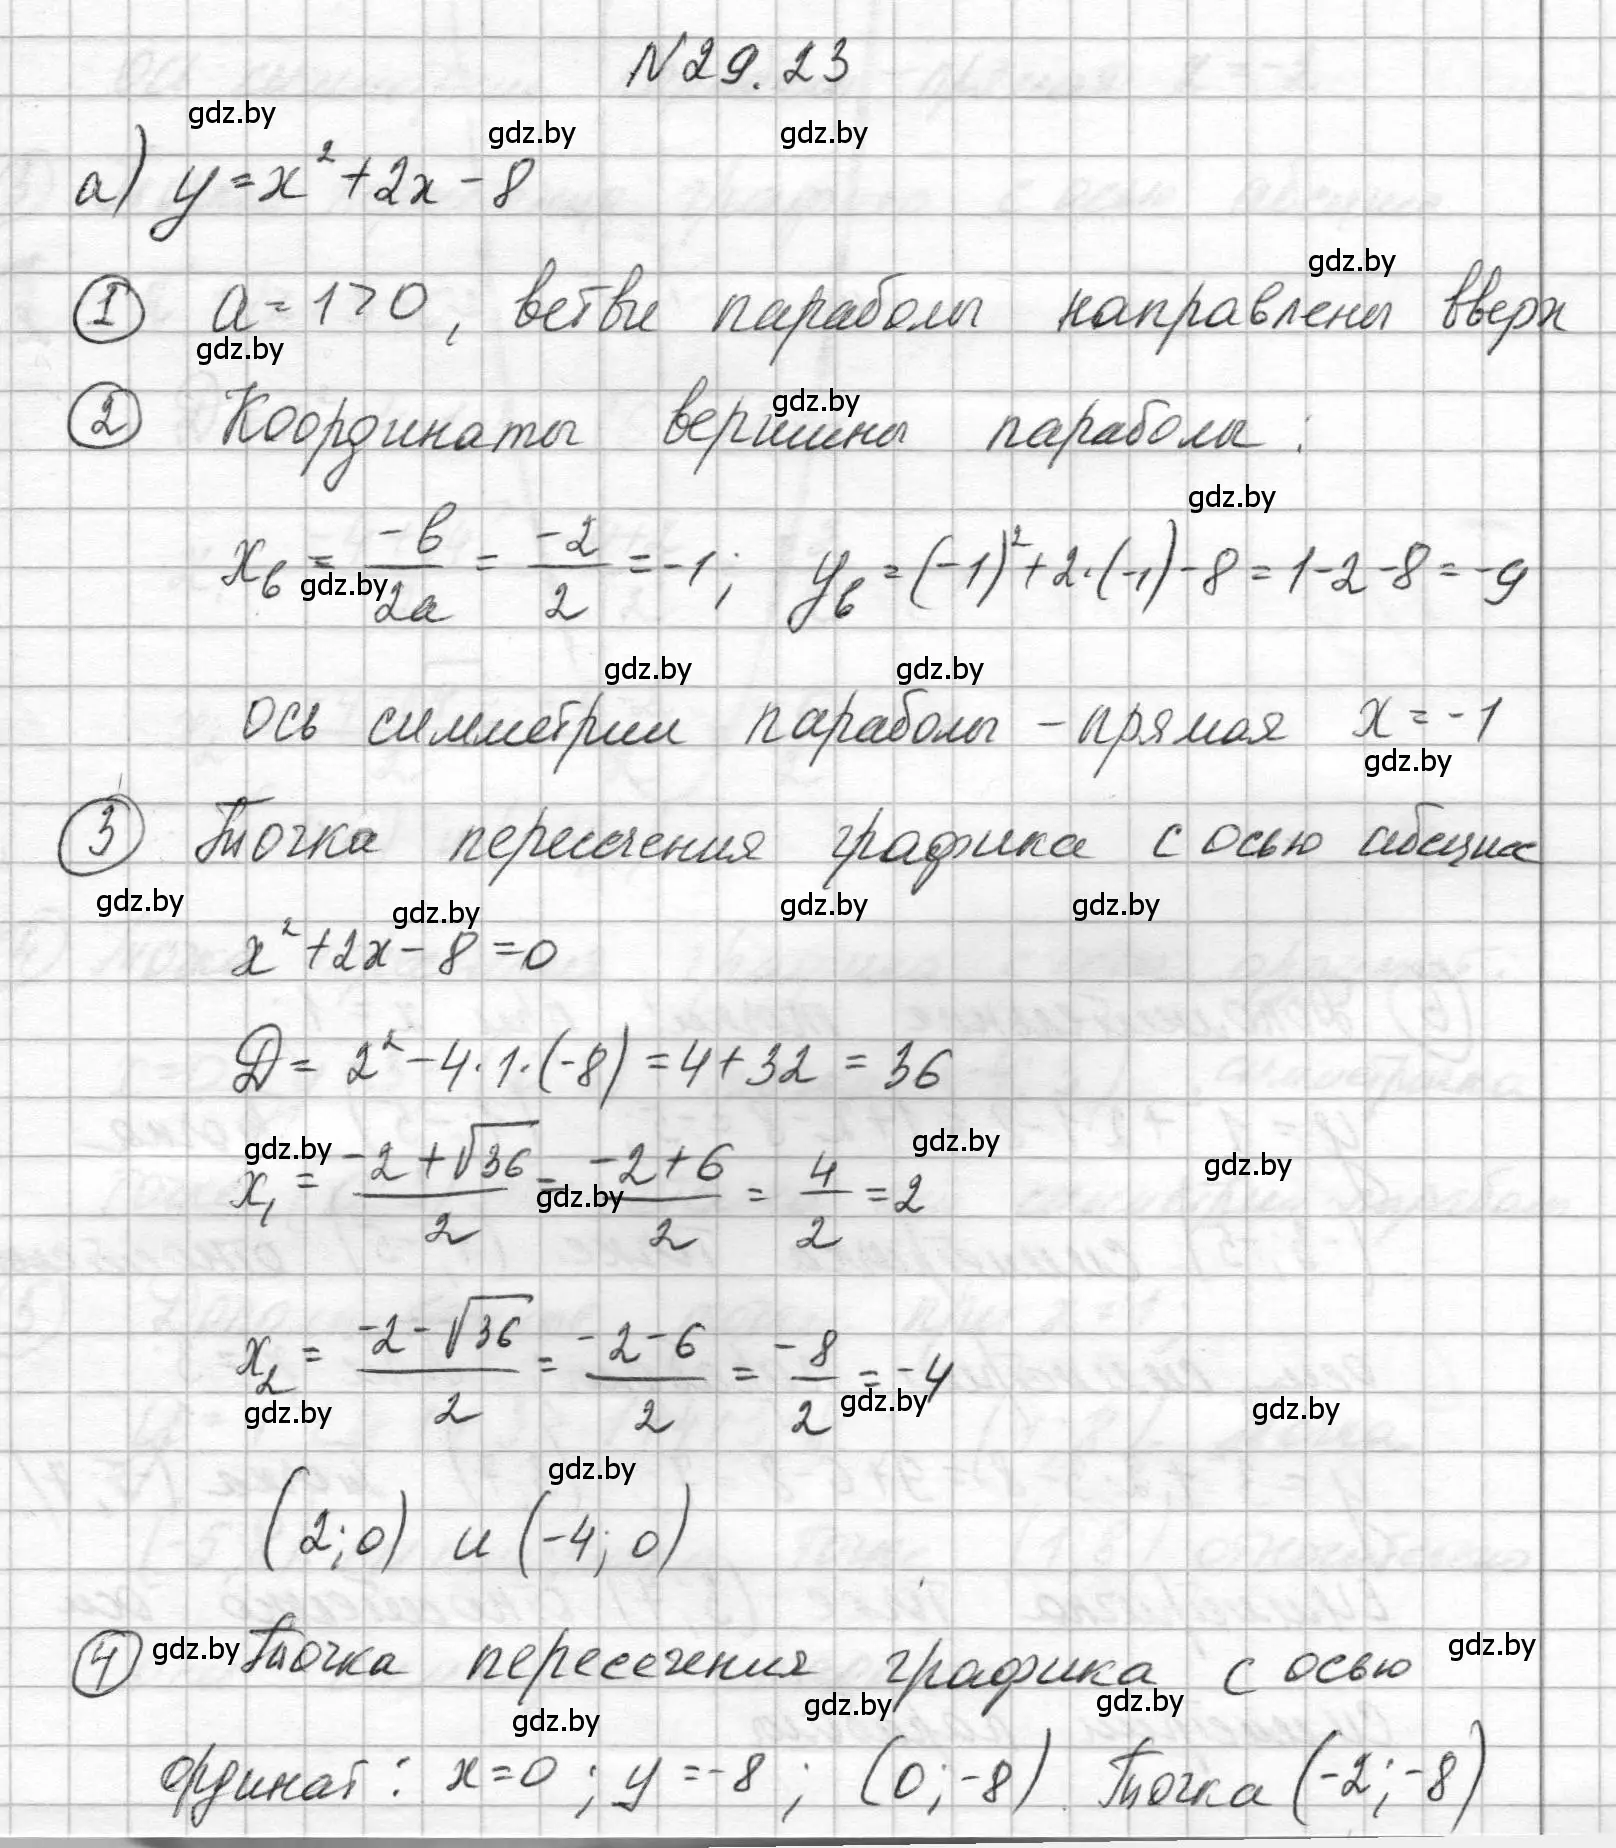 N29.23
gdz.by gdz.by gdz.by
а) y=x²+2x-8
gdz.by
① a=1>0, ветви параболы направлены вверх
gdz.by
gdz.by
② Координаты вершины параболы:
gdz.by
xв = -b/2a = -2/2 = -1; yв = (-1)²+2·(-1)-8=1-2-8=-9
gdz.by
gdz.by gdz.by
ось симметрии параболы - прямая x=-1
gdz.by
③ Точка пересечения графика с осью абсцисс
gdz.by gdz.by gdz.by gdz.by
x²+2x-8=0
D= 2²-4·1·(-8)=4+32=36
gdz.by gdz.by gdz.by
x₁ = (-2+√36)/2 = (-2+6)/2 = 4/2 = 2
gdz.by
x₂ = (-2-√36)/2 = (-2-6)/2 = -8/2 = -4
gdz.by gdz.by gdz.by
gdz.by
(2;0) и (-4;0)
④ Точка пересечения графика с осью
gdz.by gdz.by
gdz.by gdz.by gdz.by
ординат: x=0; y=-8; (0;-8). Точка (-2;-8)